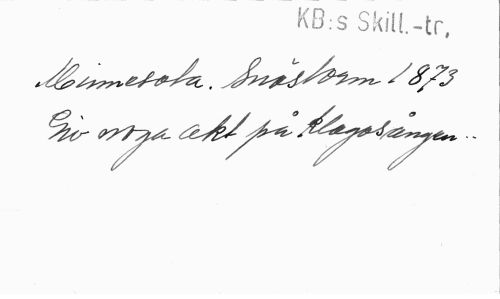 KB:s Skill.-tr.
Minnesota. Snöstorm 1873
Giv noga akt på klagosången..